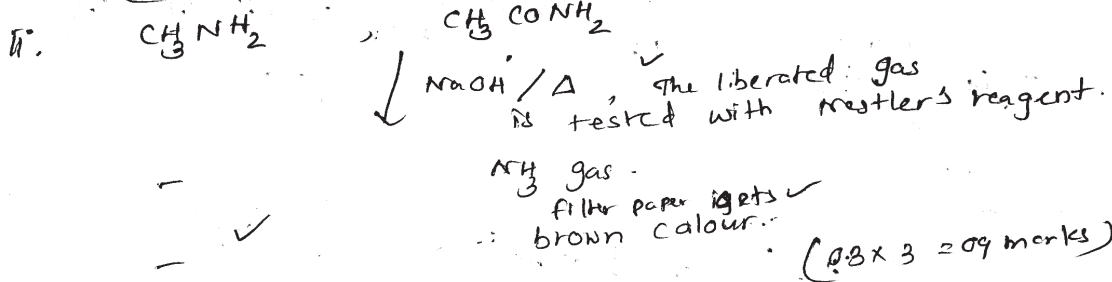 ii. CH3NH2 , CH3CONH2
↓ NaOH / Δ , ✓ The liberated gas
is tested with Nestler's reagent.
– NH3 gas.
filter paper gets ✓
– ✓ ∴ brown calour.
(03 x 3 = 09 marks)